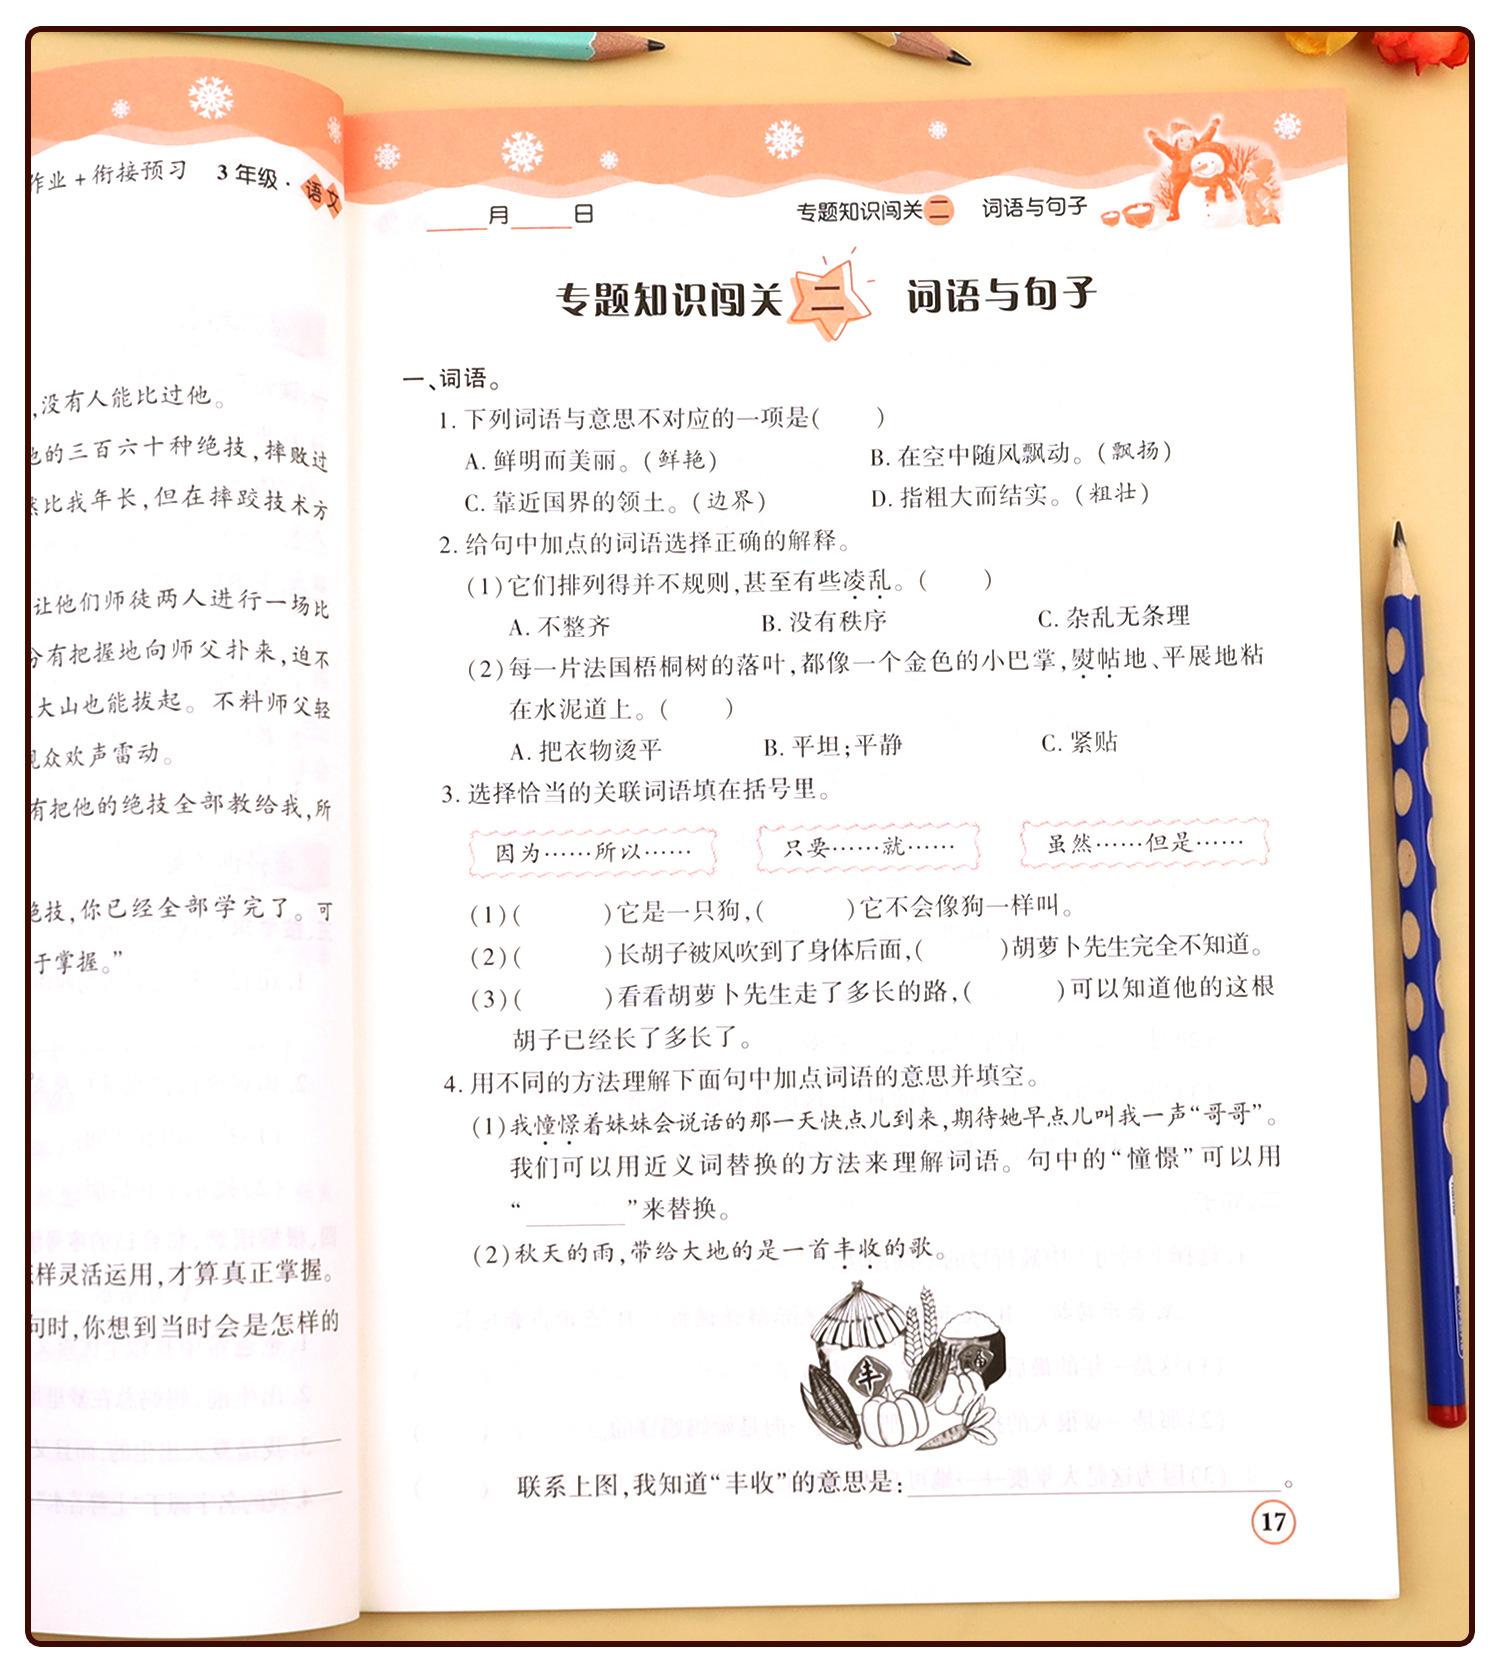 作业+衔接预习 3年级·语文
,没有人能比过他。
的三百六十种绝技,摔败过
比我年长,但在摔跤技术方
让他们师徒两人进行一场比
有把握地向师父扑来,迫不
大山也能拔起。不料师父轻
观众欢声雷动。
有把他的绝技全部教给我,所
绝技,你已经全部学完了。可
于掌握。”
样灵活运用,才算真正掌握。
何时,你想到当时会是怎样的
月 日 专题知识闯关二 词语与句子
专题知识闯关二 词语与句子
一、词语。
1.下列词语与意思不对应的一项是( )
A.鲜明而美丽。(鲜艳) B.在空中随风飘动。(飘扬)
C.靠近国界的领土。(边界) D.指粗大而结实。(粗壮)
2.给句中加点的词语选择正确的解释。
(1)它们排列得并不规则,甚至有些凌乱。( )
A.不整齐 B.没有秩序 C.杂乱无条理
(2)每一片法国梧桐树的落叶,都像一个金色的小巴掌,熨帖地、平展地粘
在水泥道上。( )
A.把衣物烫平 B.平坦;平静 C.紧贴
3.选择恰当的关联词语填在括号里。
因为……所以…… 只要……就…… 虽然……但是……
(1)( )它是一只狗,( )它不会像狗一样叫。
(2)( )长胡子被风吹到了身体后面,( )胡萝卜先生完全不知道。
(3)( )看看胡萝卜先生走了多长的路,( )可以知道他的这根
胡子已经长了多长了。
4.用不同的方法理解下面句中加点词语的意思并填空。
(1)我憧憬着妹妹会说话的那一天快点儿到来,期待她早点儿叫我一声“哥哥”。
我们可以用近义词替换的方法来理解词语。句中的“憧憬”可以用
“________”来替换。
(2)秋天的雨,带给大地的是一首丰收的歌。
丰
福
联系上图,我知道“丰收”的意思是:______________________。
17